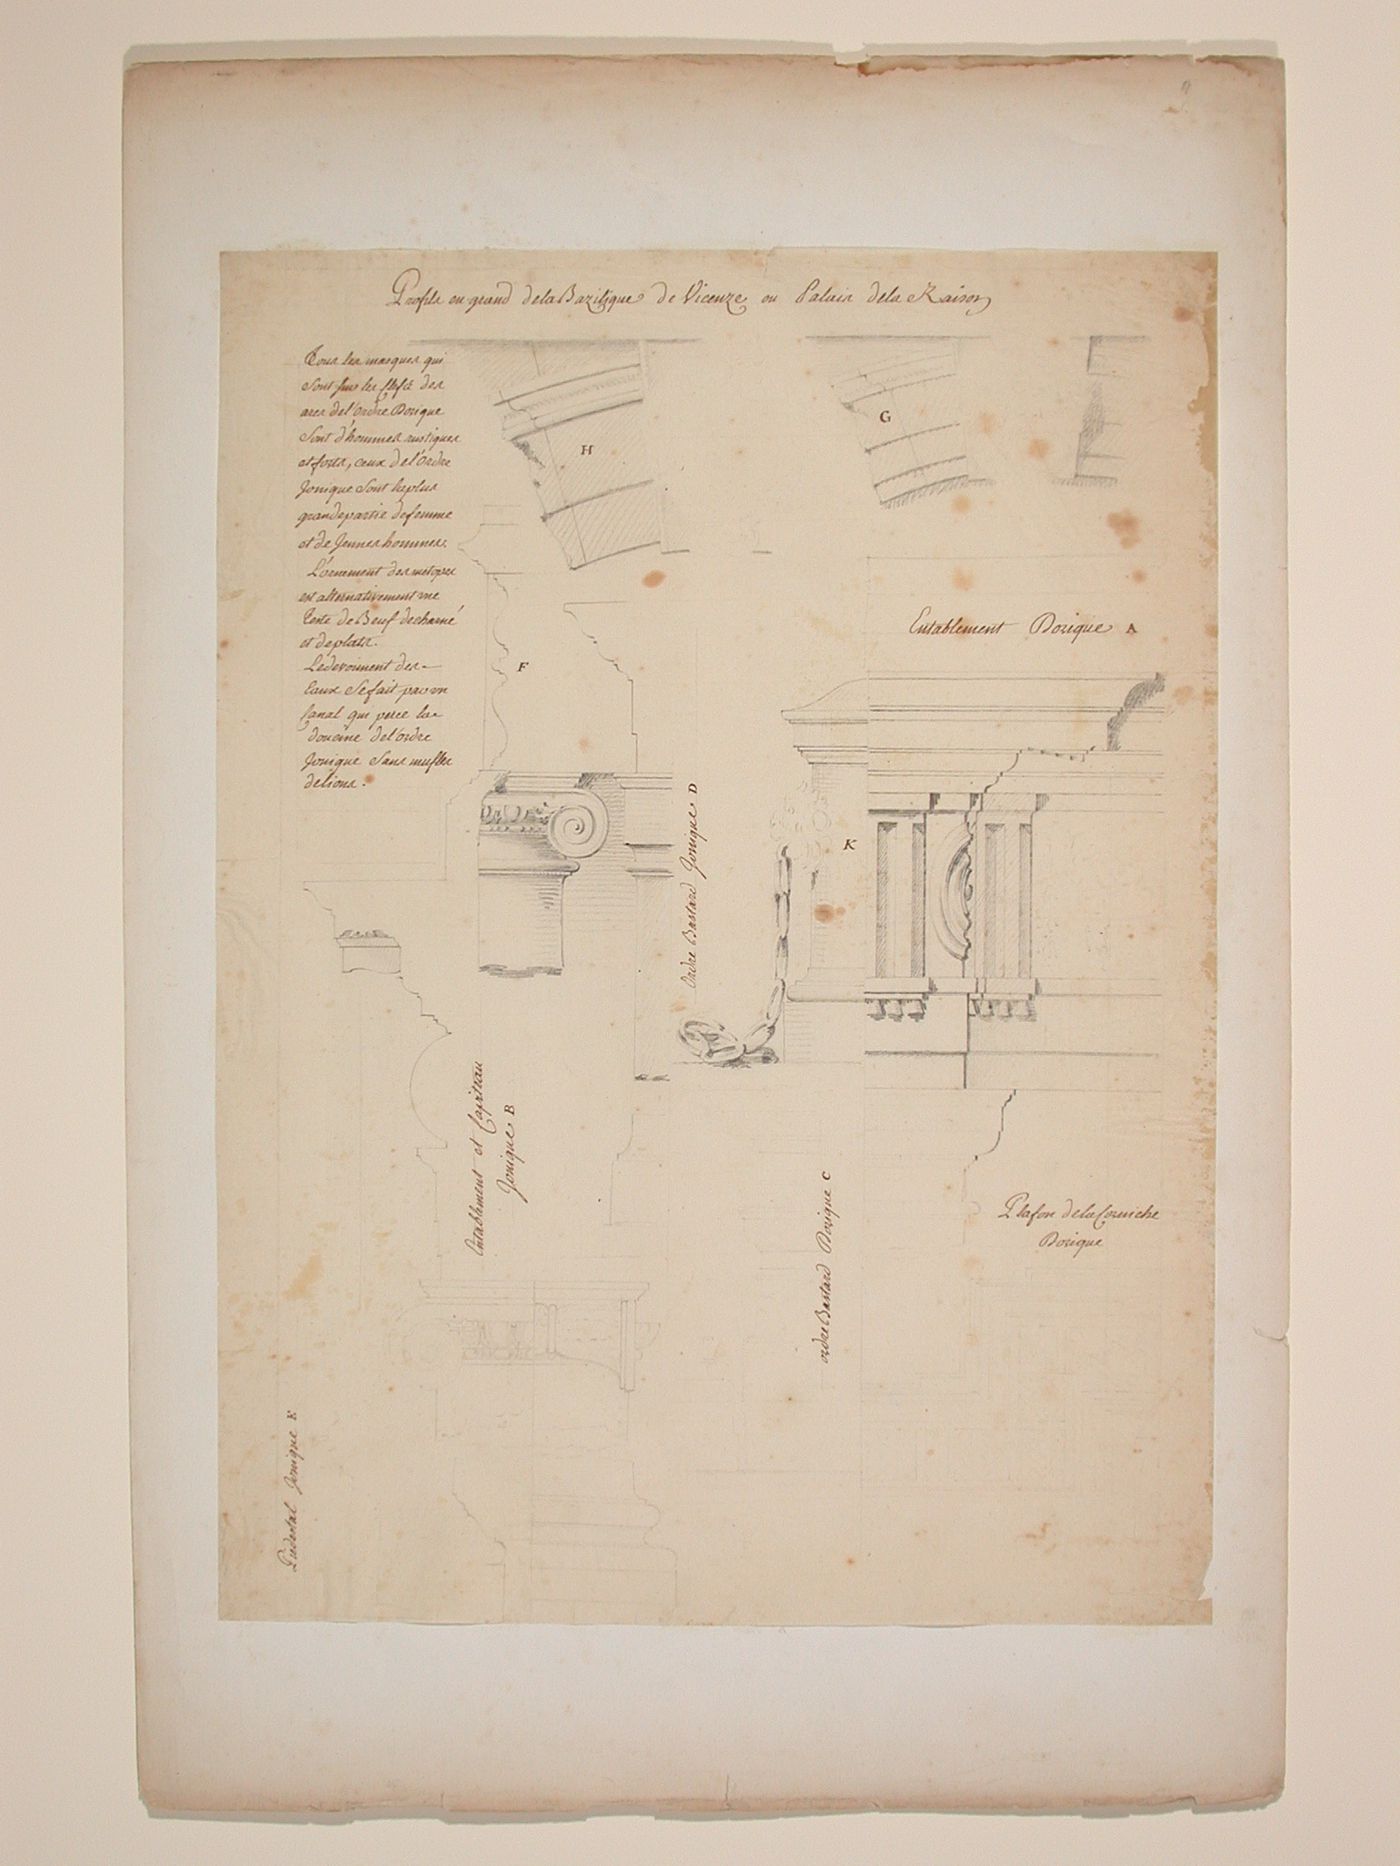 Profils en grand de la Bazilique de Vicenze ou Palais de la Raison
Tous les masques qui
sont sur les clefs des
arcs de l'ordre Dorique
sont d'hommes rustiques
et forts, ceux de l'ordre
Jonique sont la plus
grande partie de femme
et de Jeunes hommes.
L'ornement des metopes
est alternativement une
Teste de Beuf decharné
et de plats.
Le devoiment des
Eaux se fait par un
Canal qui perce la
doucine de l'ordre
Jonique sans mufles
de lions.
H
G
F
Entablement Dorique A
K
Ordre Bastard Jonique D
Entablement et Capiteau
Jonique B
ordre Bastard Dorique C
Plafon de la Corniche
Dorique
Piedestal Jonique E